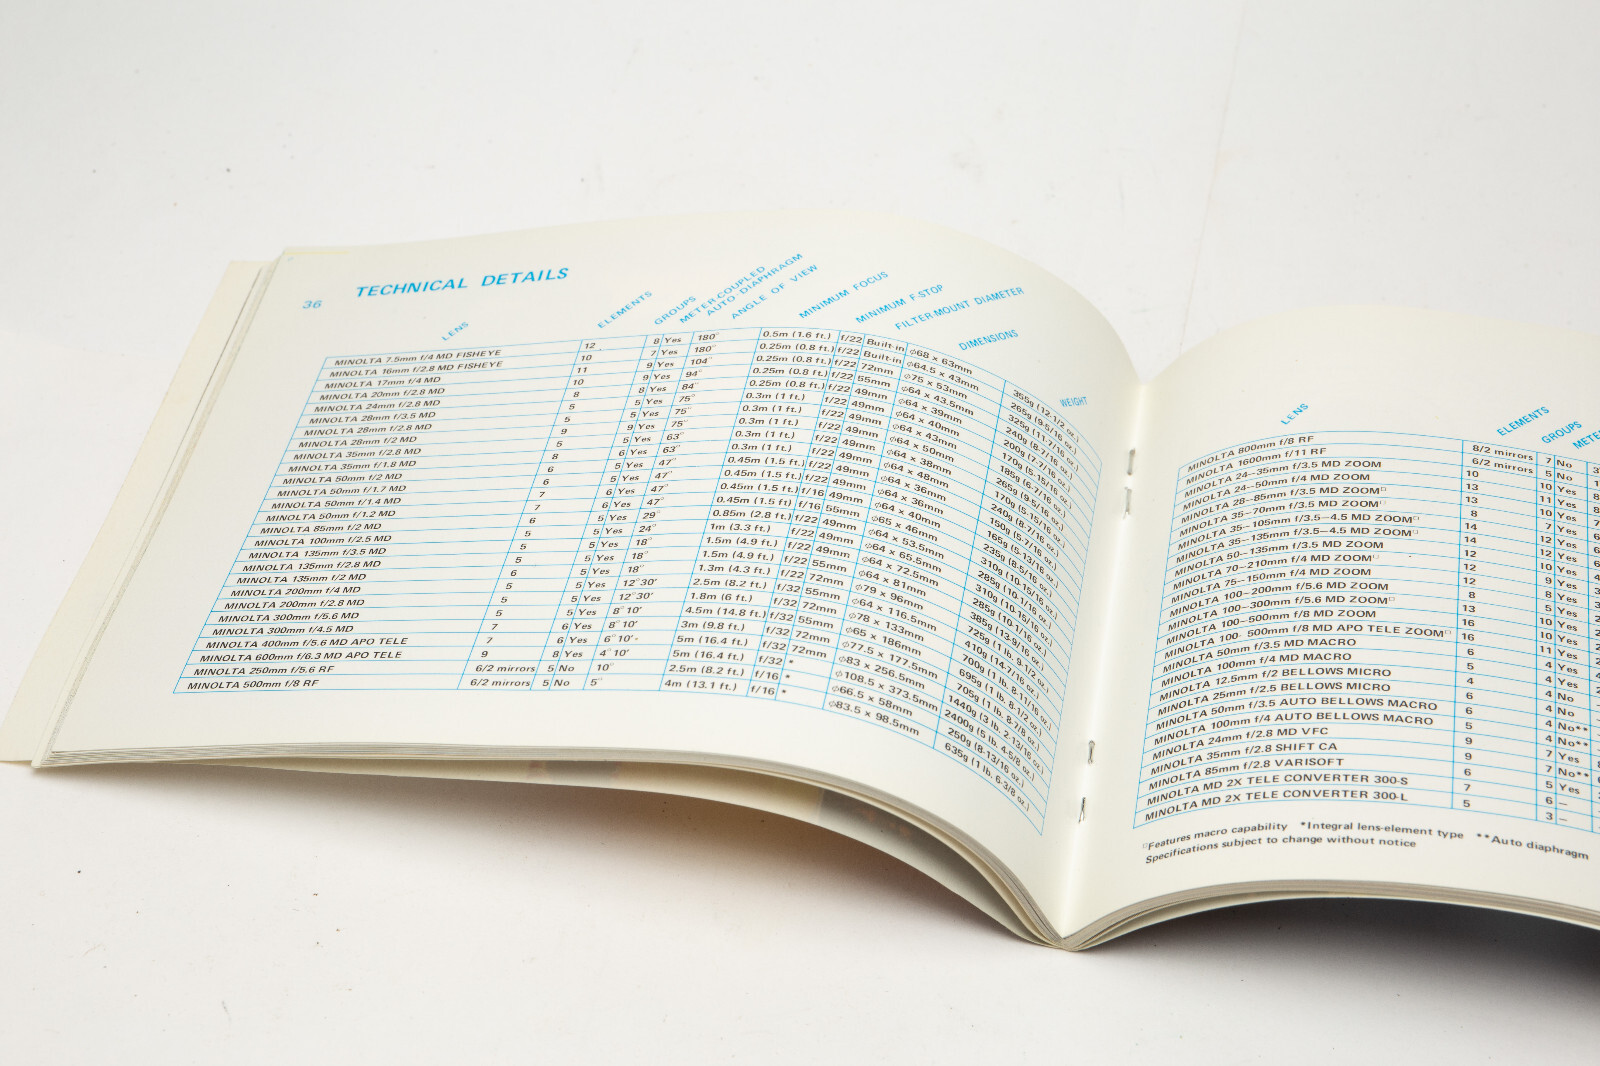 36 TECHNICAL DETAILS
LENS ELEMENTS GROUPS METER-COUPLED AUTO DIAPHRAGM ANGLE OF VIEW MINIMUM FOCUS MINIMUM F-STOP FILTER-MOUNT DIAMETER DIMENSIONS WEIGHT
MINOLTA 7.5mm f/4 MD FISHEYE 12 8 Yes 180° 0.5m (1.6 ft.) f/22 Built-in φ68 x 63mm 355g (12-1/2 oz.)
MINOLTA 16mm f/2.8 MD FISHEYE 10 7 Yes 180° 0.25m (0.8 ft.) f/22 Built-in φ64.5 x 43mm 265g (9-5/16 oz.)
MINOLTA 17mm f/4 MD 11 9 Yes 104° 0.25m (0.8 ft.) f/22 72mm φ75 x 53mm 325g (11-7/16 oz.)
MINOLTA 20mm f/2.8 MD 10 9 Yes 94° 0.25m (0.8 ft.) f/22 55mm φ64 x 43.5mm 240g (8-7/16 oz.)
MINOLTA 24mm f/2.8 MD 8 8 Yes 84° 0.25m (0.8 ft.) f/22 49mm φ64 x 39mm 200g
MINOLTA 28mm f/3.5 MD 5 5 Yes 75° 0.3m (1 ft.) f/22 49mm φ64 x 40mm 170g
MINOLTA 28mm f/2.8 MD 5 5 Yes 75° 0.3m (1 ft.) f/22 49mm φ64 x 43mm 185g
MINOLTA 28mm f/2 MD 9 9 Yes 75° 0.3m (1 ft.) f/22 49mm φ64 x 50mm 265g (9-5/16 oz.)
MINOLTA 35mm f/2.8 MD 5 5 Yes 63° 0.3m (1 ft.) f/22 49mm φ64 x 38mm 170g
MINOLTA 35mm f/1.8 MD 8 6 Yes 63° 0.3m (1 ft.) f/22 49mm φ64 x 48mm 240g (8-7/16 oz.)
MINOLTA 50mm f/2 MD 6 5 Yes 47° 0.45m (1.5 ft.) f/22 49mm φ64 x 36mm 150g
MINOLTA 50mm f/1.7 MD 6 5 Yes 47° 0.45m (1.5 ft.) f/22 49mm φ64 x 36mm 165g
MINOLTA 50mm f/1.4 MD 7 6 Yes 47° 0.45m (1.5 ft.) f/16 49mm φ64 x 40mm 235g (8-5/16 oz.)
MINOLTA 50mm f/1.2 MD 7 6 Yes 47° 0.45m (1.5 ft.) f/16 55mm φ65 x 46mm 310g
MINOLTA 85mm f/2 MD 6 5 Yes 29° 0.85m (2.8 ft.) f/22 49mm φ64 x 53.5mm 285g (10-1/16 oz.)
MINOLTA 100mm f/2.5 MD 5 5 Yes 24° 1m (3.3 ft.) f/22 49mm φ64 x 65.5mm 310g (10-15/16 oz.)
MINOLTA 135mm f/3.5 MD 5 5 Yes 18° 1.5m (4.9 ft.) f/22 49mm φ64 x 72.5mm 285g (10-1/16 oz.)
MINOLTA 135mm f/2.8 MD 5 5 Yes 18° 1.5m (4.9 ft.) f/22 55mm φ64 x 81mm 385g (13-9/16 oz.)
MINOLTA 135mm f/2 MD 6 5 Yes 18° 1.3m (4.3 ft.) f/22 72mm φ79 x 96mm 725g (1 lb. 9-1/2 oz.)
MINOLTA 200mm f/4 MD 5 5 Yes 12°30' 2.5m (8.2 ft.) f/32 55mm φ64 x 116.5mm 410g (14-7/16 oz.)
MINOLTA 200mm f/2.8 MD 5 5 Yes 12°30' 1.8m (6 ft.) f/32 72mm φ78 x 133mm 700g (1 lb. 8-11/16 oz.)
MINOLTA 300mm f/5.6 MD 5 5 Yes 8°10' 4.5m (14.8 ft.) f/32 55mm φ65 x 186mm 695g (1 lb. 8-1/2 oz.)
MINOLTA 300mm f/4.5 MD 7 6 Yes 8°10' 3m (9.8 ft.) f/32 72mm φ77.5 x 177.5mm 705g (1 lb. 8-7/8 oz.)
MINOLTA 400mm f/5.6 MD APO TELE 7 6 Yes 6°10' 5m (16.4 ft.) f/32 72mm φ83 x 256.5mm 1440g (3 lb. 2-13/16 oz.)
MINOLTA 600mm f/6.3 MD APO TELE 9 8 Yes 4°10' 5m (16.4 ft.) f/32 * φ108.5 x 373.5mm 2400g (5 lb. 4-5/8 oz.)
MINOLTA 250mm f/5.6 RF 6/2 mirrors 5 No 10° 2.5m (8.2 ft.) f/16 * φ66.5 x 58mm 250g (8-13/16 oz.)
MINOLTA 500mm f/8 RF 6/2 mirrors 5 No 5° 4m (13.1 ft.) f/16 * φ83.5 x 98.5mm 635g (1 lb. 6-3/8 oz.)
LENS ELEMENTS GROUPS
MINOLTA 800mm f/8 RF 8/2 mirrors 7 No
MINOLTA 1600mm f/11 RF 6/2 mirrors 5 No
MINOLTA 24–35mm f/3.5 MD ZOOM 10 10 Yes
MINOLTA 24–50mm f/4 MD ZOOM 13 11 Yes
MINOLTA 28–85mm f/3.5 MD ZOOM□ 13 10 Yes
MINOLTA 35–70mm f/3.5 MD ZOOM□ 8 7 Yes
MINOLTA 35–105mm f/3.5–4.5 MD ZOOM□ 14 12 Yes
MINOLTA 35–135mm f/3.5–4.5 MD ZOOM□ 14 12 Yes
MINOLTA 50–135mm f/3.5 MD ZOOM 12 10 Yes
MINOLTA 70–210mm f/4 MD ZOOM□ 12 9 Yes
MINOLTA 75–150mm f/4 MD ZOOM 12 8 Yes
MINOLTA 100–200mm f/5.6 MD ZOOM 8 5 Yes
MINOLTA 100–300mm f/5.6 MD ZOOM□ 13 10 Yes
MINOLTA 100–500mm f/8 MD ZOOM 16 10 Yes
MINOLTA 100-500mm f/8 MD APO TELE ZOOM□ 16 11 Yes
MINOLTA 50mm f/3.5 MD MACRO 6 5 Yes
MINOLTA 100mm f/4 MD MACRO 5 4 Yes
MINOLTA 12.5mm f/2 BELLOWS MICRO 4 4 No
MINOLTA 25mm f/2.5 BELLOWS MICRO 6 4 No
MINOLTA 50mm f/3.5 AUTO BELLOWS MACRO 6 4 No**
MINOLTA 100mm f/4 AUTO BELLOWS MACRO 5 4 No**
MINOLTA 24mm f/2.8 MD VFC 9 7 Yes
MINOLTA 35mm f/2.8 SHIFT CA 9 7 No**
MINOLTA 85mm f/2.8 VARISOFT 6 5 Yes
MINOLTA MD 2X TELE CONVERTER 300-S 7 6 –
MINOLTA MD 2X TELE CONVERTER 300-L 5 3 –
□Features macro capability *Integral lens-element type **Auto diaphragm
Specifications subject to change without notice